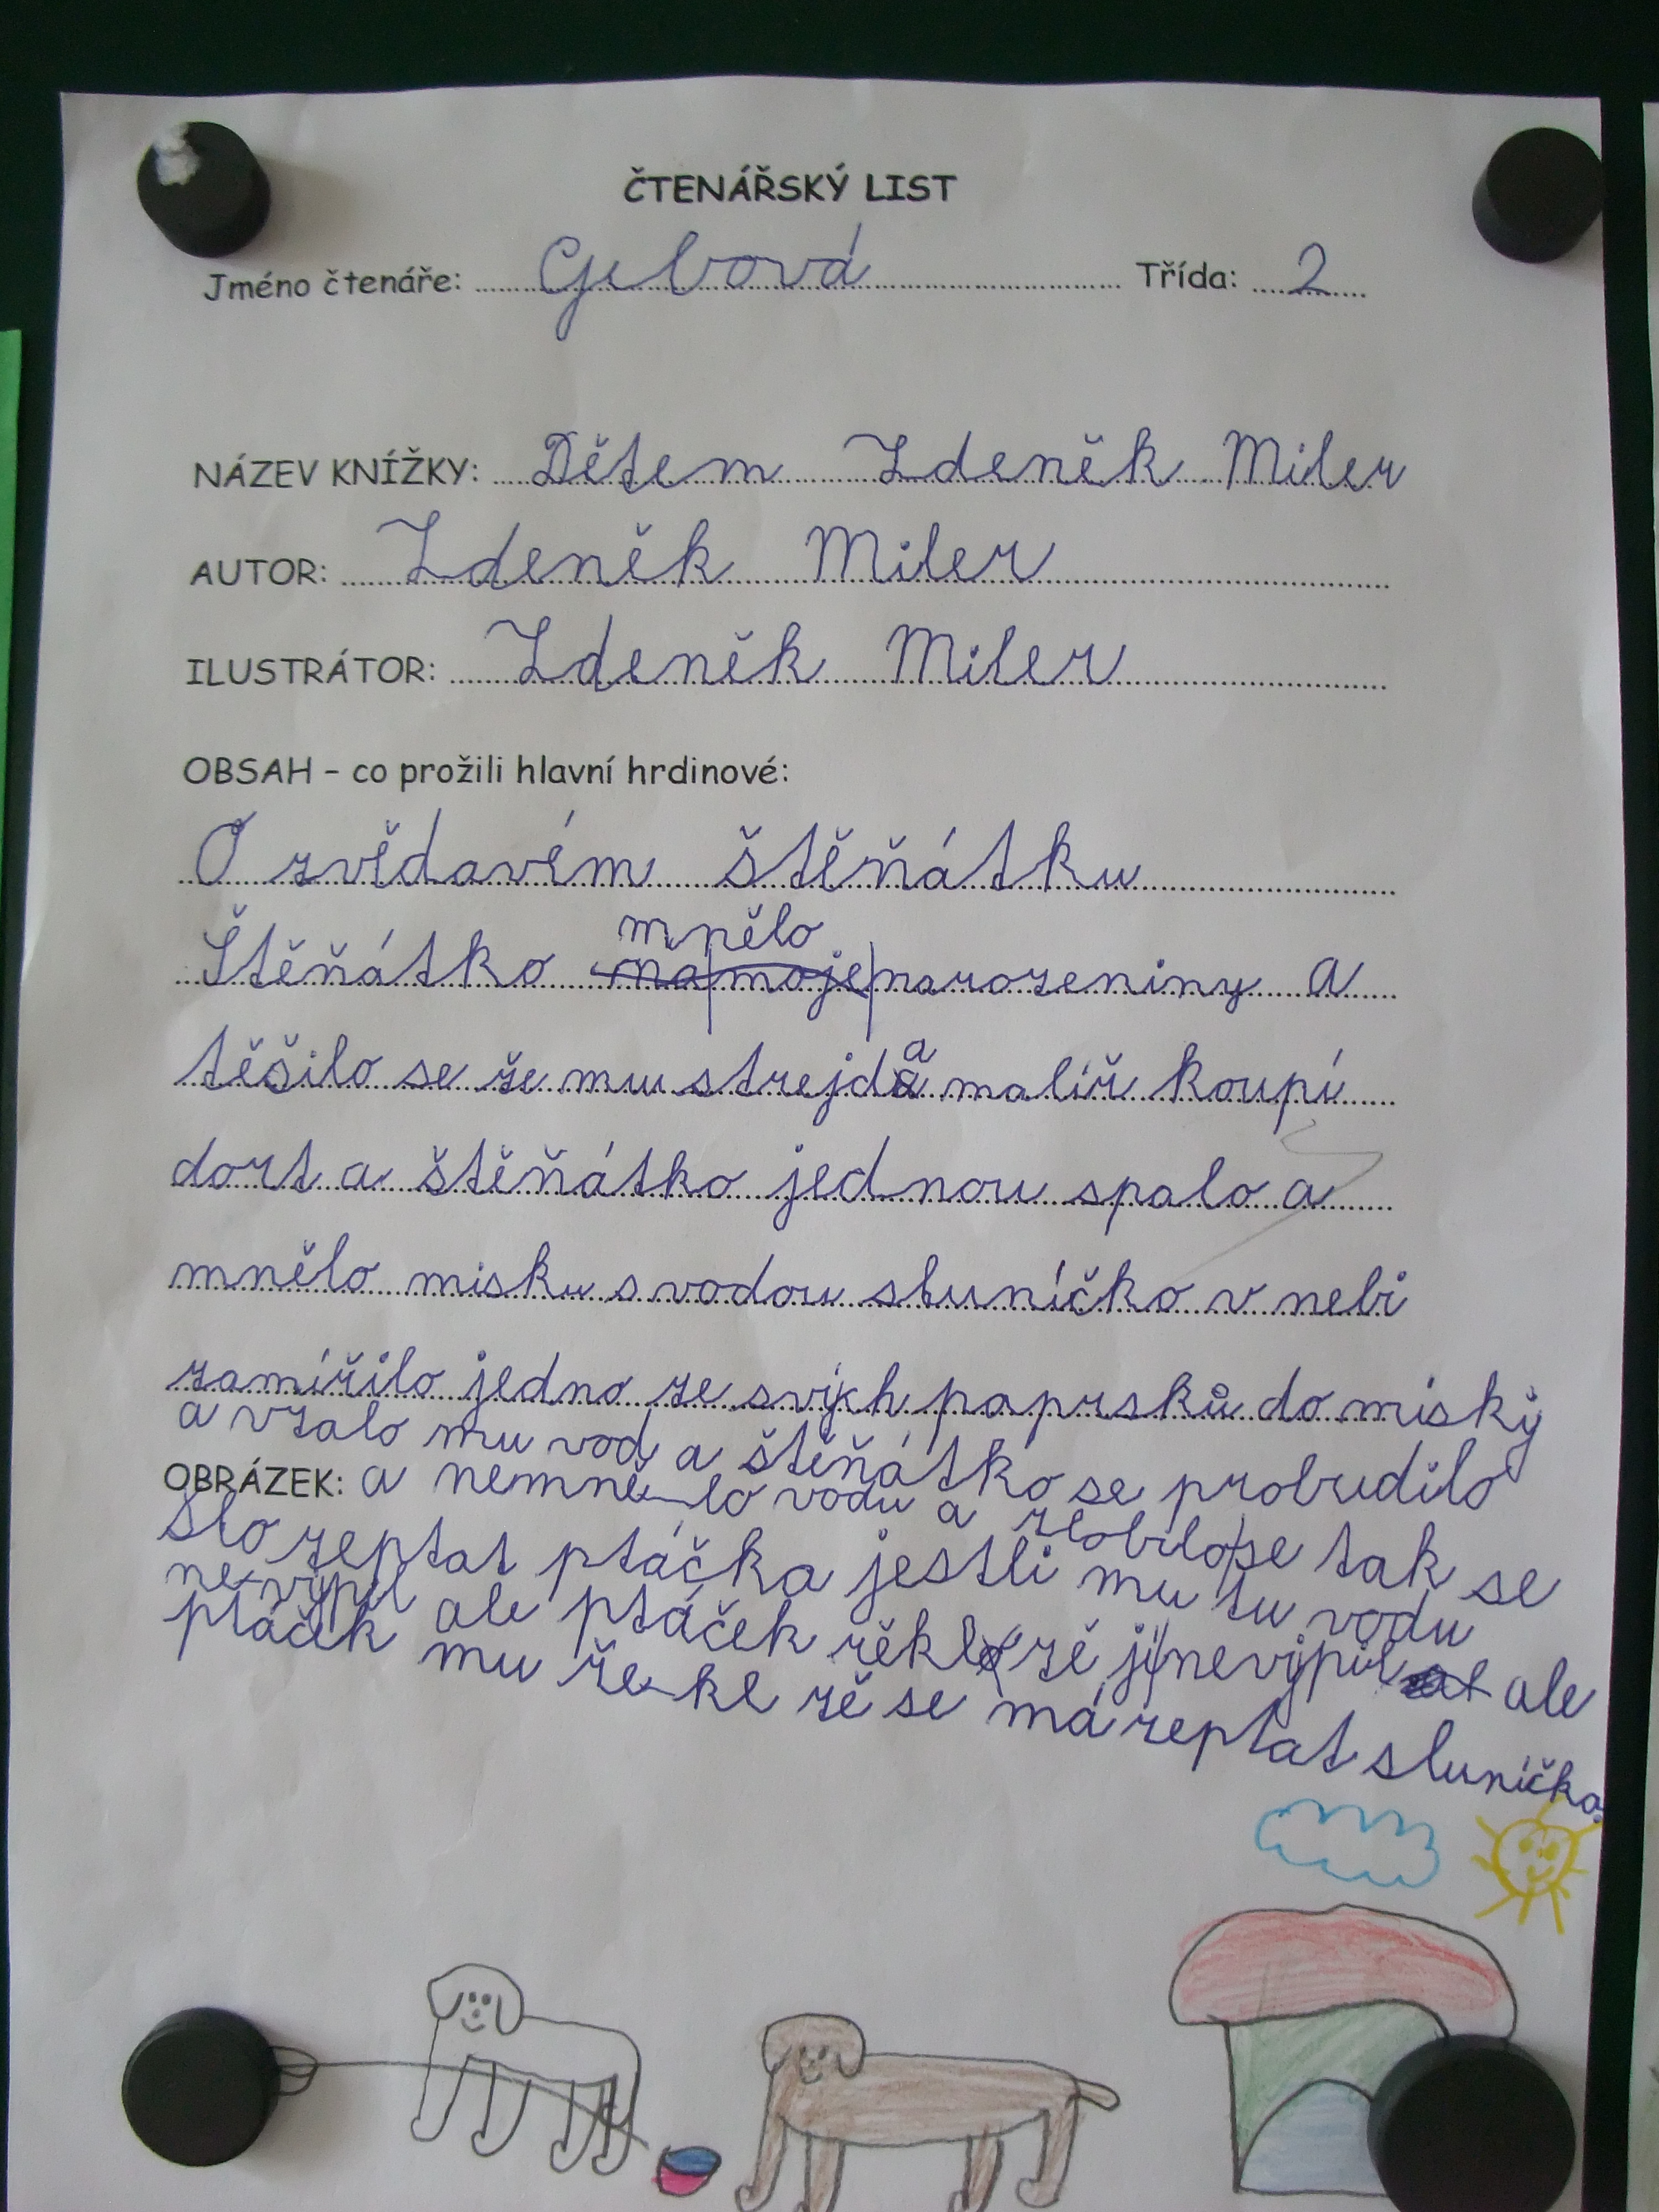 ČTENÁŘSKÝ LIST
Jméno čtenáře: Gebová Třída: 2
NÁZEV KNÍŽKY: Dětem Zdeněk Miler
AUTOR: Zdeněk Miler
ILUSTRÁTOR: Zdeněk Miler
OBSAH – co prožili hlavní hrdinové:
O zvědavém štěňátku
mnělo
Štěňátko na moje narozeniny a
těšilo se že mu strejda malíř koupí
dort a štěňátko jednou spalo a
mnělo misku s vodou sluníčko v nebi
zamířilo jedno ze svích paprsků do misky
a vzalo mu vod a štěňátko se probudilo
OBRÁZEK: a nemnělo vodu a zlobilo se tak se
šlo zeptat ptáčka jestli mu tu vodu
nevipil ale ptáček řekl že ji nevipil ale
ptáček mu řekl žě se má zeptat sluníčka.